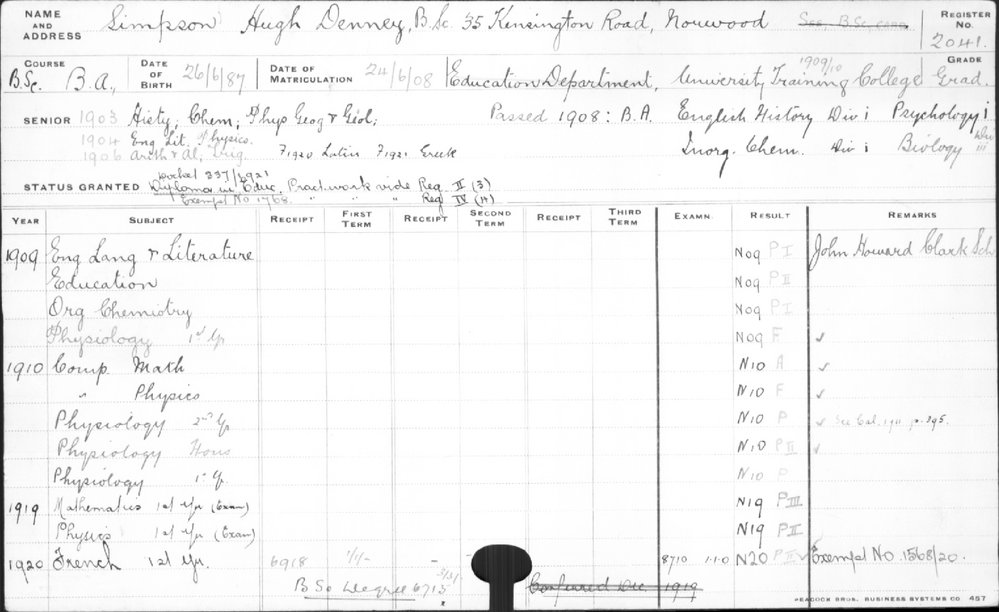 NAME AND ADDRESS Simpson Hugh Denney, B.Sc. 35 Kensington Road, Norwood See B.Sc. card REGISTER No. 2041.
COURSE B.Sc. B.A., DATE OF BIRTH 26/6/87 DATE OF MATRICULATION 24/6/08 Education Department, University Training College 1909/10 GRADE Grad.
SENIOR 1903 Histy, Chem, Phys Geog & Geol; Passed 1908: B.A. English History Div i Psychology i
1904 Eng Lit. Physics. Inorg. Chem. Div i Biology Div iii
1906 Arith & Al, Trig. F1920 Latin F1921 Greek
Docket 337/1921
STATUS GRANTED Diploma in Educ. Pract. work vide Reg. II (3)
Exempt No 1768. " " " Reg IV (4)
YEAR SUBJECT RECEIPT FIRST TERM RECEIPT SECOND TERM RECEIPT THIRD TERM EXAMN. RESULT REMARKS
1909 Eng Lang & Literature N09 P I John Howard Clark Sch
Education N09 P II
Org Chemistry N09 P I
Physiology 1st yr N09 F ✓
1910 Comp. Math N10 A ✓
" Physics N10 F ✓
Physiology 2nd yr N10 P ✓ See Cal. 1911 p. 395.
Physiology Hons N10 P II ✓
Physiology 1st yr. N10 P
1919 Mathematics 1st yr (Exam) N19 P III
Physics 1st yr (Exam) N19 P II
1920 French 1st yr. 6918 1/1/- 8710 1-1-0 N20 P II ✓ Exempt No. 1568/20.
B Sc Degree 6713 3/3/- Conferred Dec. 1919
PEACOCK BROS. BUSINESS SYSTEMS CO 457